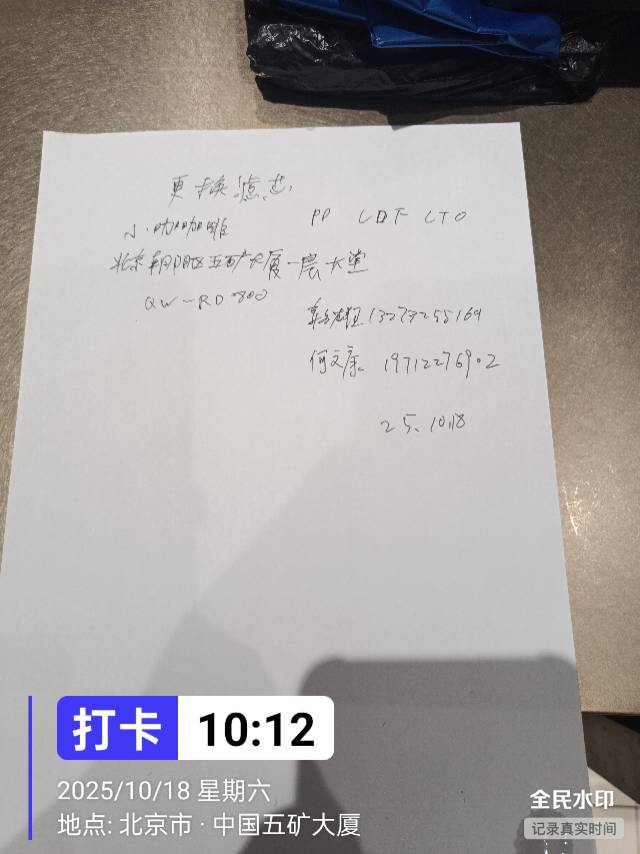 更换滤芯
小·咖咖啡 PP CDF CTO
北京朝阳区五矿大厦一层大堂
QW-RD800
何文康 19712276902
25.10.18
打卡 10:12
2025/10/18 星期六
地点: 北京市·中国五矿大厦
全民水印
记录真实时间